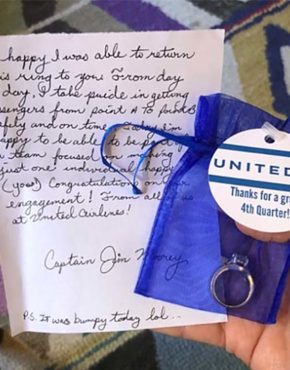 happy I was able to return
is ring to you. From day
day, I take puide in getting
sengers from point A to point B
fely and on time. Today I'm
appy to be able to be part of
a team focused on making
just one individual happy
(you!) Congratulations on your
engagement! From all of us
at United Airlines!
Captain Jim
P.S. It was bumpy today lol...
UNITED
Thanks for a gr
4th Quarter!